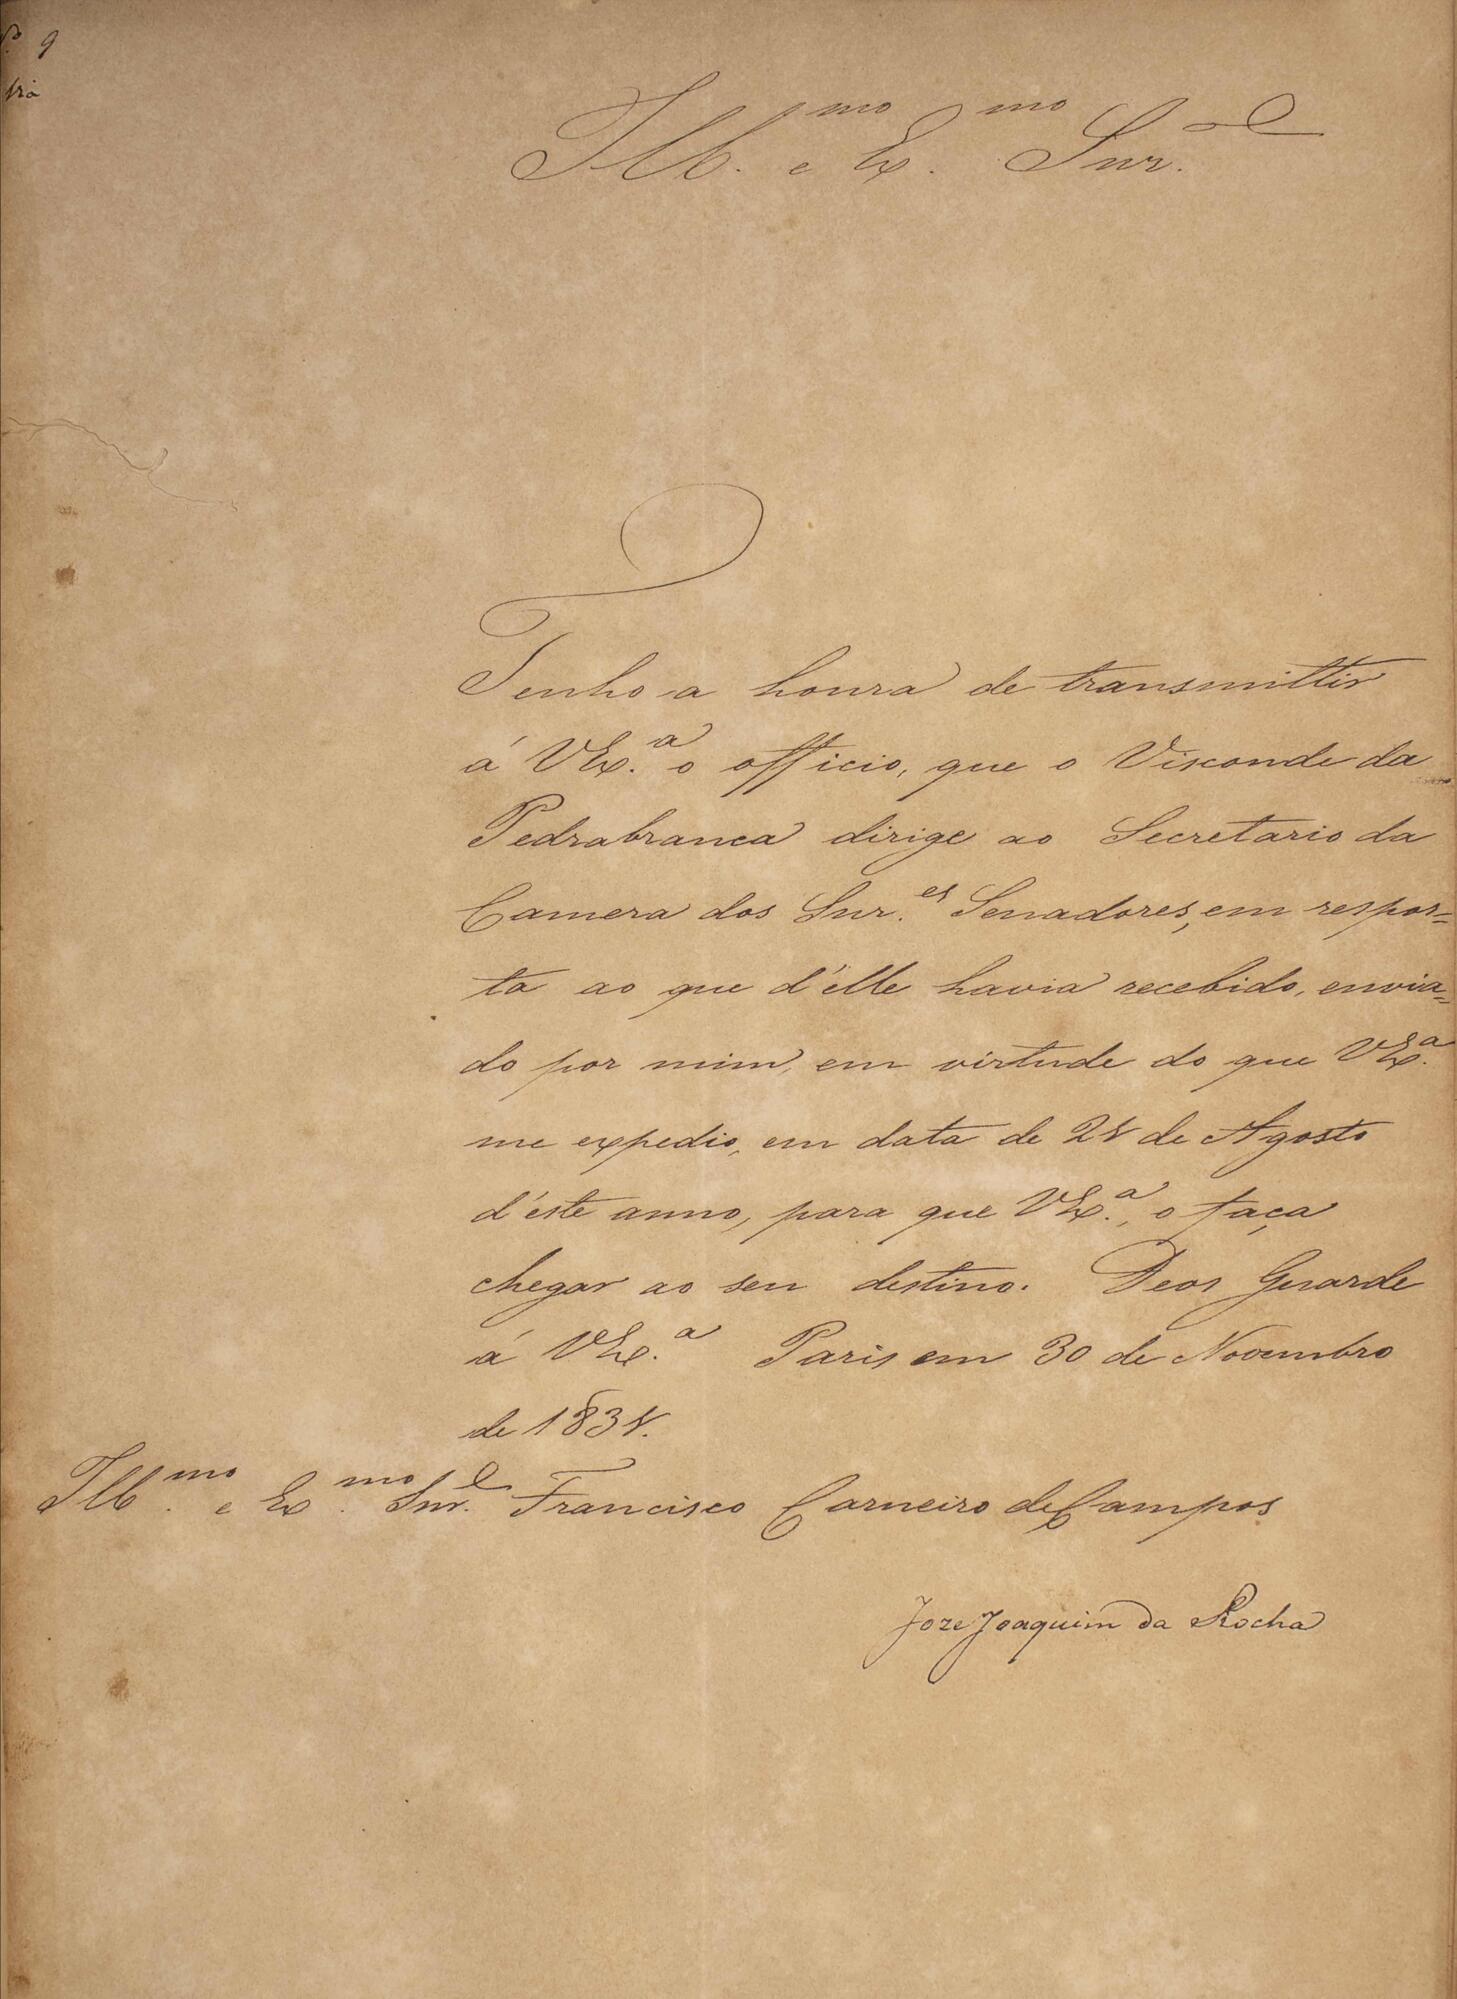 N.º 9
Ill.mo e Ex.mo Snr.
Tenho a honra de transmittir
á VEx.ª o officio, que o Visconde da
Pedrabranca dirige ao Secretario da
Camera dos Snr.es Senadores, em respos=
ta ao que d'élle havia recebido, envia=
do por mim, em virtude do que VEx.ª
me expedio, em data de 21 de Agosto
d'éste anno, para que VEx.ª, o faça
chegar ao seu destino. Deos Guarde
á VEx.ª Paris em 30 de Novembro
de 1831.
Ill.mo e Ex.mo Snr. Francisco Carneiro de Campos
Joze Joaquim da Rocha